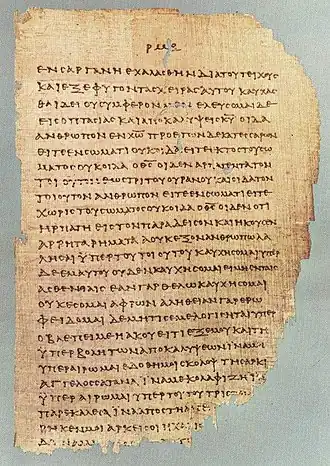 ΕΝϹΑΡΓΑΝΗΕΧΑΛΑϹΘΗΝΔΙΑΤΟΥΤΕΙΧΟΥϹ
ΚΑΙΕΞΕΦΥΓΟΝΤΑϹΧΕΙΡΑϹΑΥΤΟΥΚΑΥΧΑϹ
ΘΑΙΔΕΙΟΥϹΥΜΦΕΡΟΝΜΕΝΕΛΕΥϹΟΜΑΙΔΕ
ΕΙϹΟΠΤΑϹΙΑϹΚΑΙΑΠΟΚΑΛΥΨΕΙϹΚ̅Υ̅ΟΙΔΑ
ΑΝΘΡΩΠΟΝΕΝΧ̅Ρ̅Ω̅ΠΡΟΕΤΩΝΔΕΚΑΤΕϹϹΑΡΩΝ
ΕΙΤΕΕΝϹΩΜΑΤΙΟΥΚΟΙΔΑΕΙΤΕΕΚΤΟϹΤΟΥϹΩ
ΜΑΤΟϹΟΥΚΟΙΔΑΟΘ̅Ϲ̅ΟΙΔΕΝΑΡΠΑΓΕΝΤΑΤΟΝ
ΤΟΙΟΥΤΟΝΕΩϹΤΡΙΤΟΥΟΥΡΑΝΟΥΚΑΙΟΙΔΑΤΟΝ
ΤΟΙΟΥΤΟΝΑΝΘΡΩΠΟΝΕΙΤΕΕΝϹΩΜΑΤΙΕΙΤΕ
ΧΩΡΙϹΤΟΥϹΩΜΑΤΟϹΟΥΚΟΙΔΑΟΘ̅Ϲ̅ΟΙΔΕΝΟΤΙ
ΗΡΠΑΓΗΕΙϹΤΟΝΠΑΡΑΔΕΙϹΟΝΚΑΙΗΚΟΥϹΕΝ
ΑΡΡΗΤΑΡΗΜΑΤΑΑΟΥΚΕΞΟΝΑΝΘΡΩΠΩΛΑ
ΛΗϹΑΙΫΠΕΡΤΟΥΤΟΙΟΥΤΟΥΚΑΥΧΗϹΟΜΑΙΥΠΕΡ
ΔΕΕΜΑΥΤΟΥΟΥΔΕΝΚΑΥΧΗϹΟΜΑΙΕΙΜΗΕΝΤΑΙϹ
ΑϹΘΕΝΕΙΑΙϹΕΑΝΓΑΡΘΕΛΩΚΑΥΧΗϹΟΜΑΙ
ΟΥΚΕϹΟΜΑΙΑΦΡΩΝΑΛΗΘΕΙΑΝΓΑΡΕΡΩ
ΦΕΙΔΟΜΑΙΔΕΜΗΤΙϹΕΜΕΛΟΓΙϹΗΤΑΙΥΠΕΡ
ΟΒΛΕΠΕΙΜΕΗΑΚΟΥΕΙΤΙΕΞΕΜΟΥΚΑΙΤΗ
ΫΠΕΡΒΟΛΗΤΩΝΑΠΟΚΑΛΥΨΕΩΝΙΝΑΜΗ
ΥΠΕΡΑΙΡΩΜΑΙΕΔΟΘΗΜΟΙϹΚΟΛΟΨΤΗϹΑΡΚΙ
ΑΓΓΕΛΟϹϹΑΤΑΝΑΙΝΑΜΕΚΟΛΑΦΙΖΗΙΝΑ
ΫΠΕΡΑΙΡΩΜΑΙΥΠΕΡΤΟΥΤΟΥΤΡΙϹ
ΠΑΡΕΚΑΛΕϹΑΙΝΑΑΠΟϹΤΗ
ΡΗΚΕΝΜΟΙΑΡΚΕΙϹΟΙΗΧΑΡΙϹ